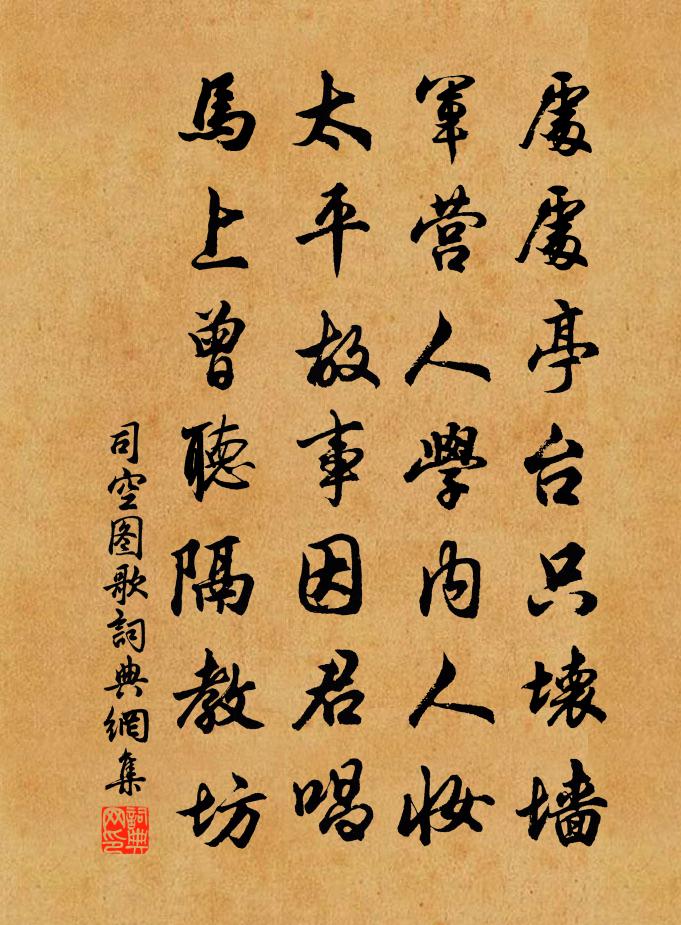 處處亭台只壞墙
軍营人學内人妝
太平故事因君唱
馬上曾聽隔教坊
司空图歌詞典網集
詞典网印